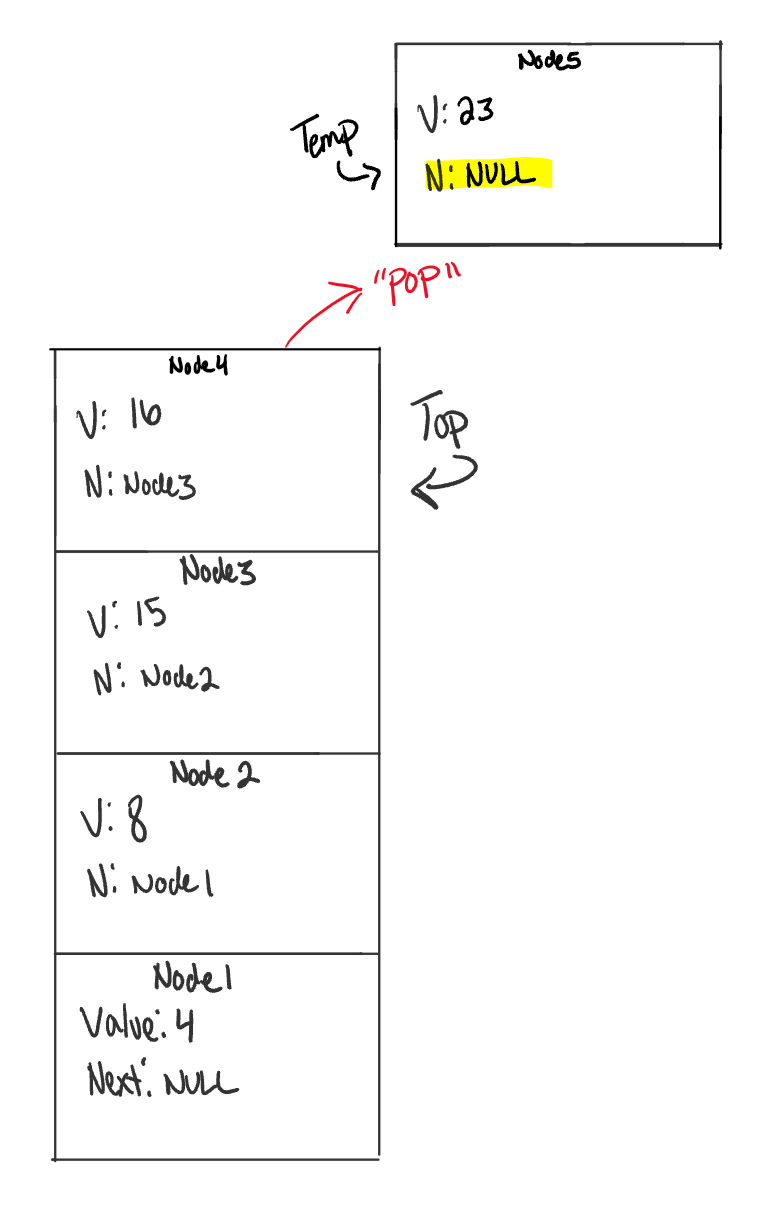 Node5
V: 23
Temp
N: NULL
"POP"
Node4
V: 16
Top
N: Node3
Node3
V: 15
N: Node2
Node 2
V: 8
N: Node1
Node1
Value: 4
Next: NULL